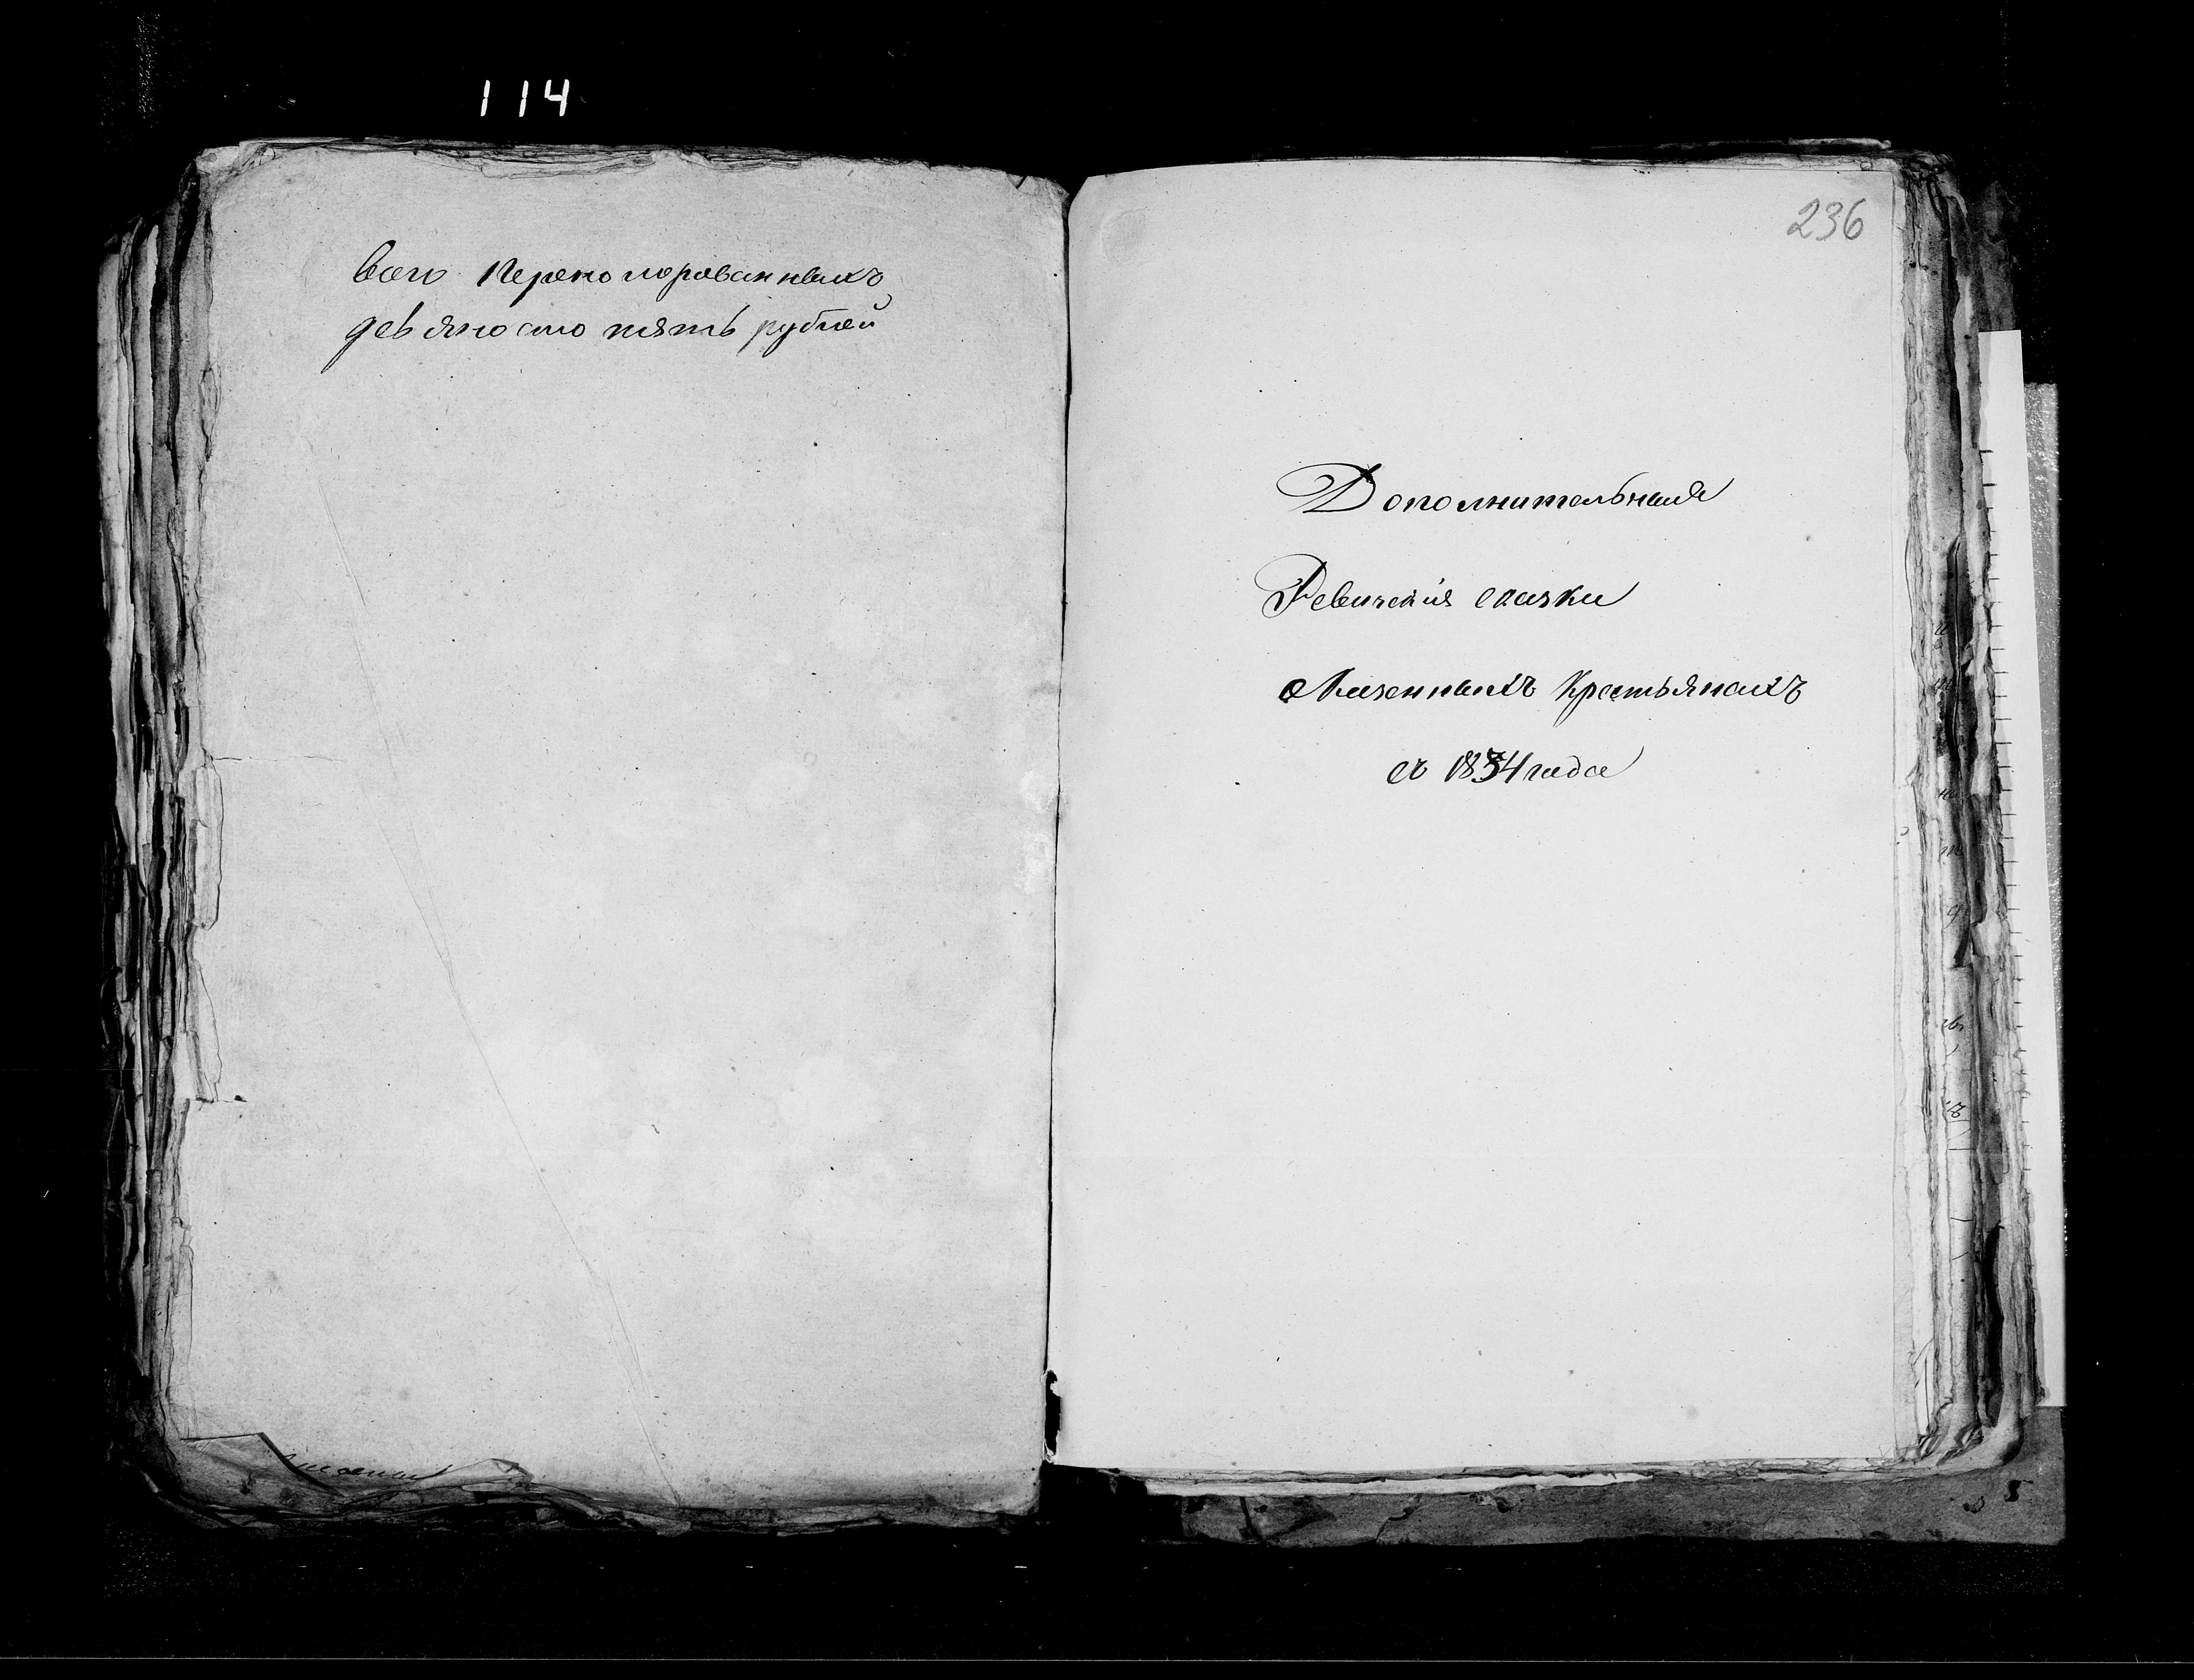 114
всего Переномерованныхъ
девяносто пять рублей
236
Дополнительныя
Ревизския сказки
о Казенныхъ Крестьянахъ
съ 1834 года